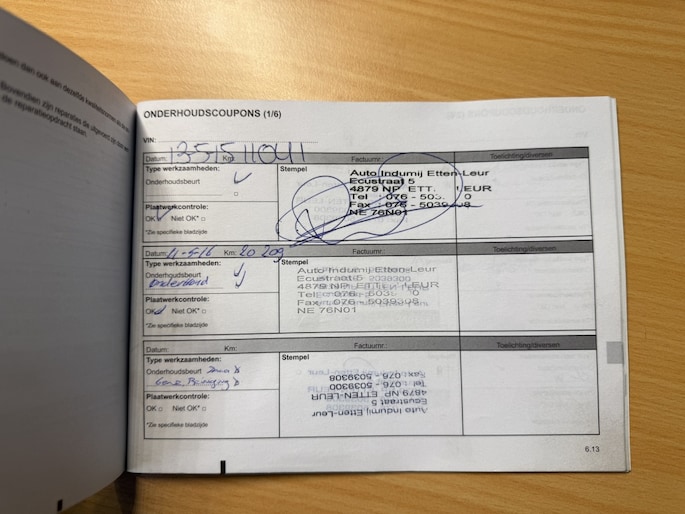 aan dezelfde
Bovendien zijn reparaties
de reparatieopdracht staan.
ONDERHOUDSCOUPONS (1/6)
VIN:
Datum: 13-5-15 Km: 11041 Factuurnr.: Toelichting/diversen
Type werkzaamheden:
Onderhoudsbeurt
Stempel
Auto Indumij Etten-Leur
Ecustraat 5
4879 NP ETT LEUR
Tel : 076 - 503 0
Fax : 076 - 5039308
NE 76N01
Plaatwerkcontrole:
OK Niet OK*
*Zie specifieke bladzijde
Datum: 11-5-16 Km: 20 209 Factuurnr.: Toelichting/diversen
Type werkzaamheden:
Onderhoudsbeurt
Stempel
Auto Indumij Etten-Leur
Ecustraat 5
4879 NP ETTEN LEUR
Tel : 076 - 503 0
Fax : 076 - 5039308
NE 76N01
Plaatwerkcontrole:
OK Niet OK*
*Zie specifieke bladzijde
Datum: Km: Factuurnr.: Toelichting/diversen
Type werkzaamheden:
Onderhoudsbeurt
Stempel
Auto Indumij Etten-Leur
Ecustraat 5
4879 NP ETTEN-LEUR
Tel : 076 - 5039300
Fax : 076 - 5039308
Plaatwerkcontrole:
OK Niet OK*
*Zie specifieke bladzijde
6.13